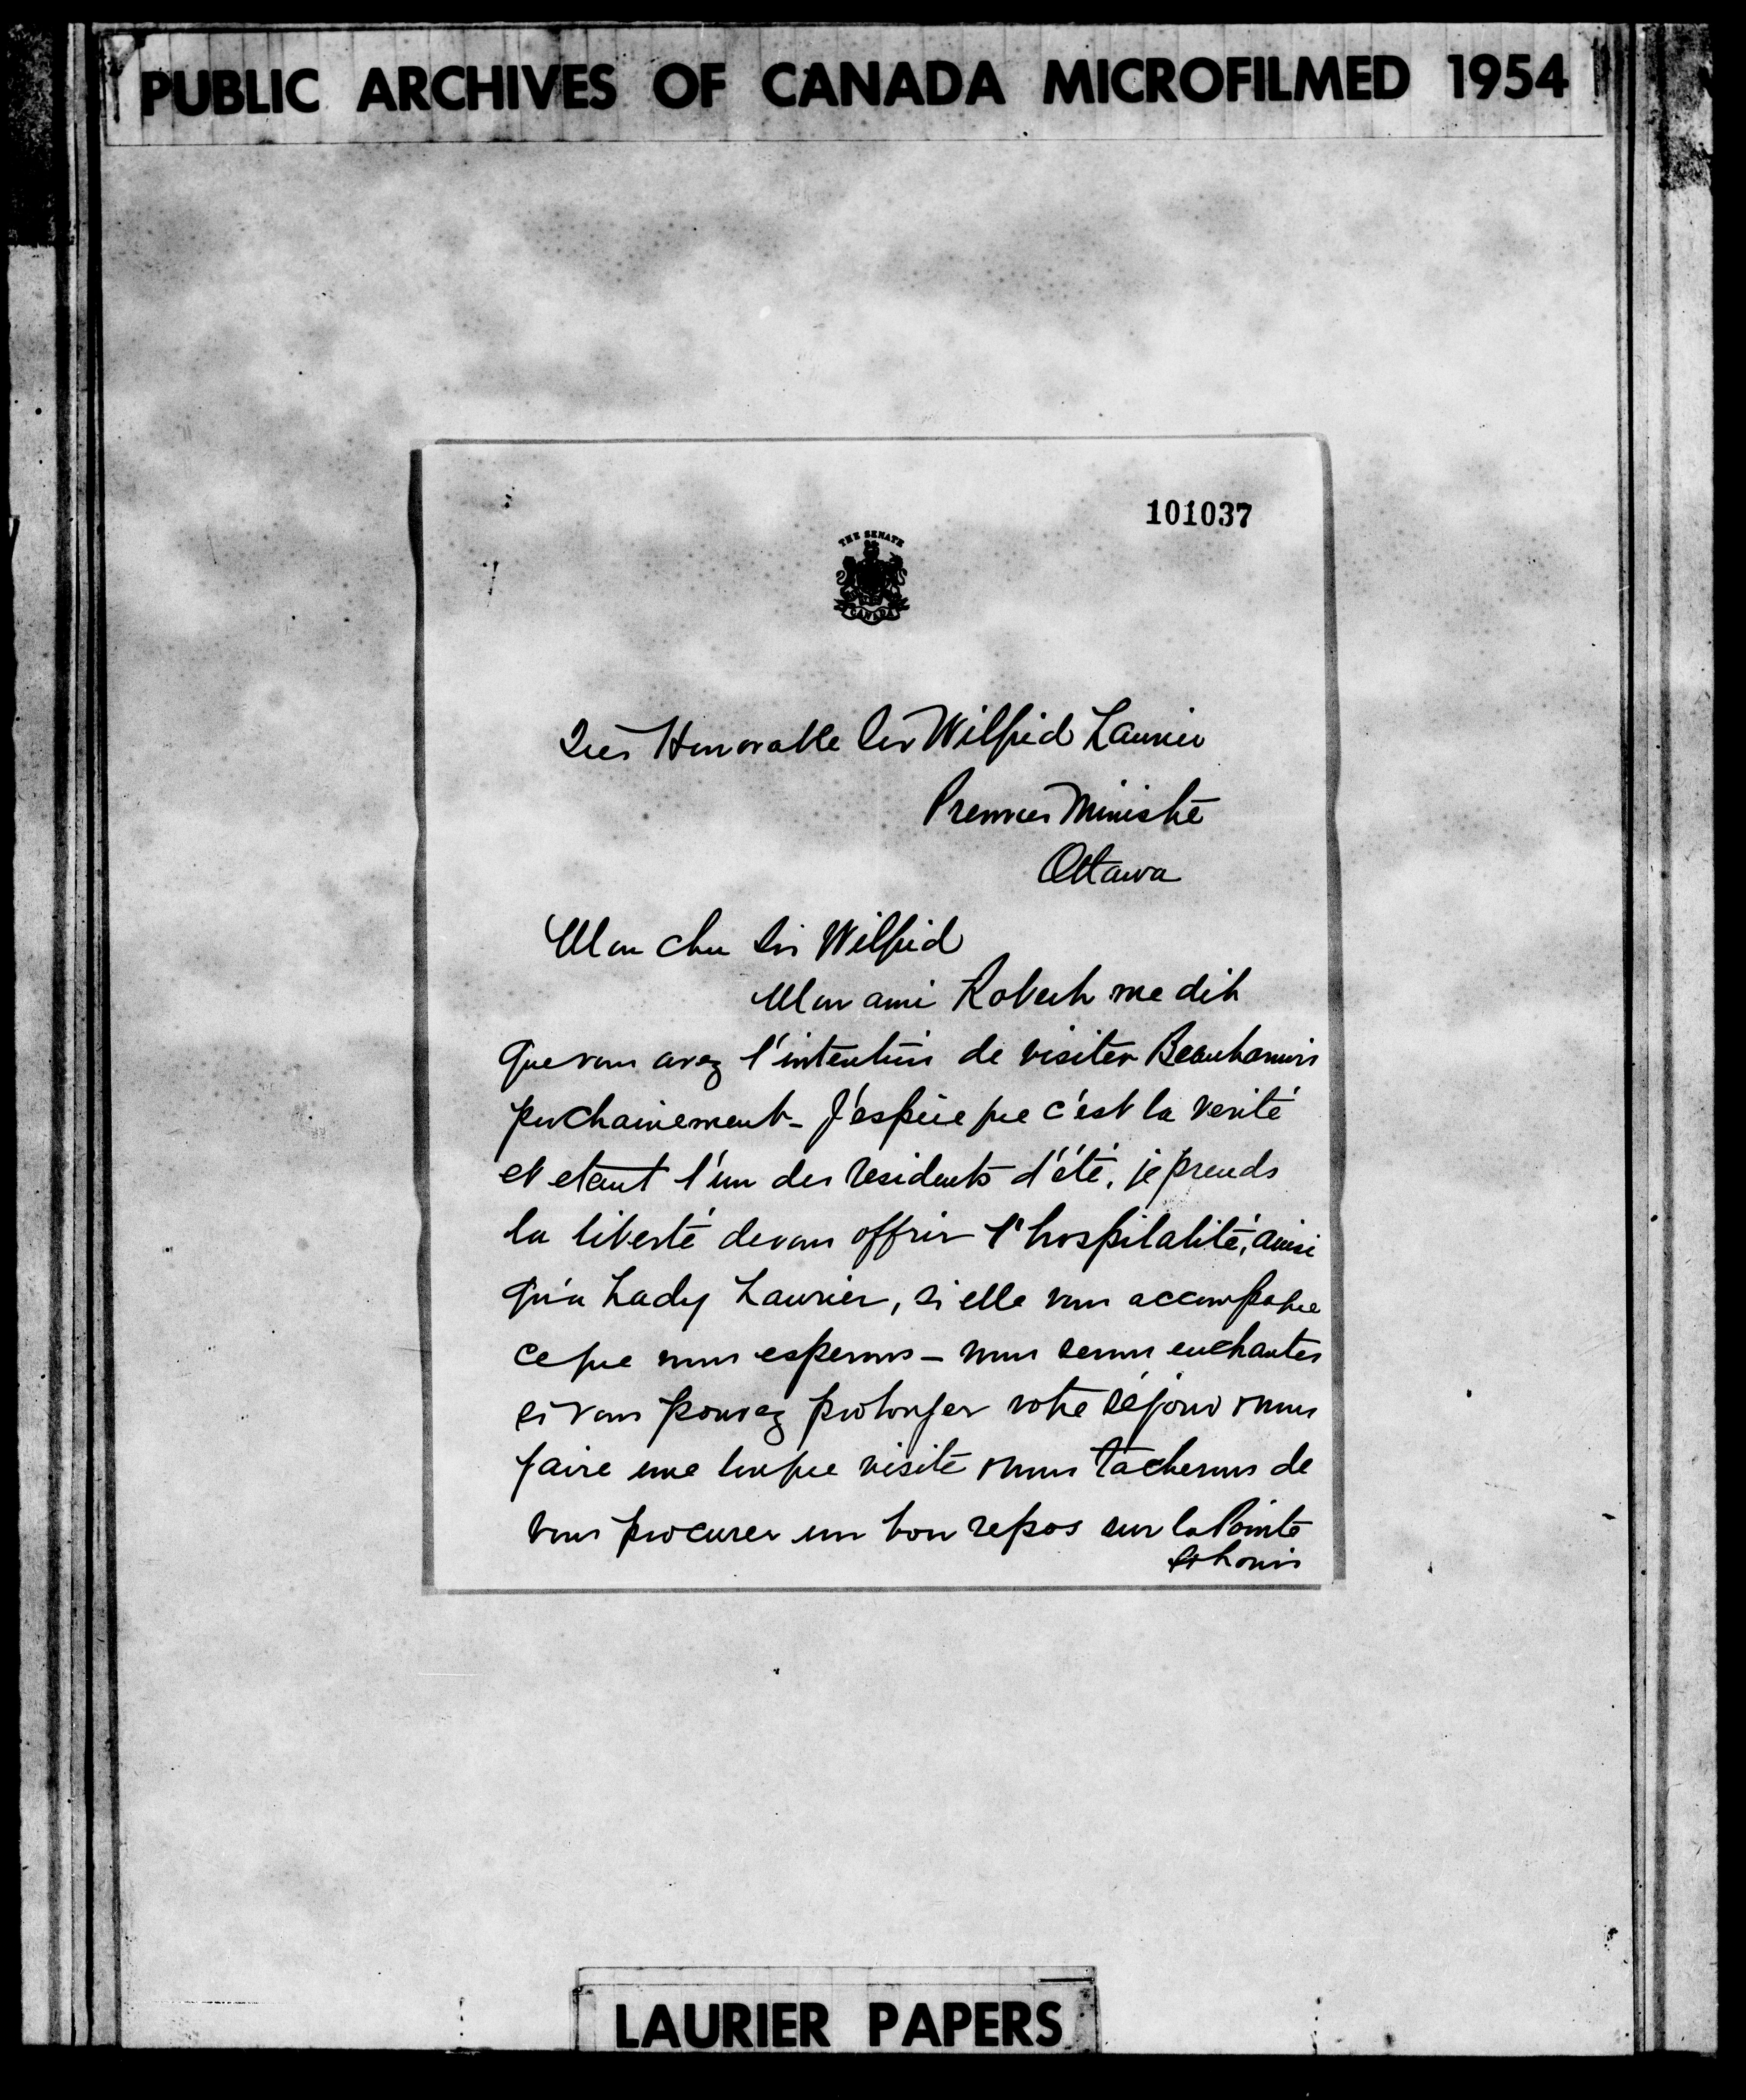 PUBLIC ARCHIVES OF CANADA MICROFILMED 1954
101037
THE SENATE
CANADA
Très Honorable Sir Wilfrid Laurier
Premier Ministre
Ottawa
Mon cher Sir Wilfrid
Mon ami Robert me dit
que vous avez l'intention de visiter Beauharnois
prochainement - J'espère que c'est la verité
et etant l'un des residents d'été, je prends
la liberté de vous offrir l'hospitalité, ainsi
qu'a Lady Laurier, si elle vous accompagne
ce que nous esperons - nous serons enchantes
si vous pouvez prolonger votre séjour & nous
faire une longue visite & nous tâcherons de
vous procurer un bon repos sur la Pointe
St Louis
LAURIER PAPERS